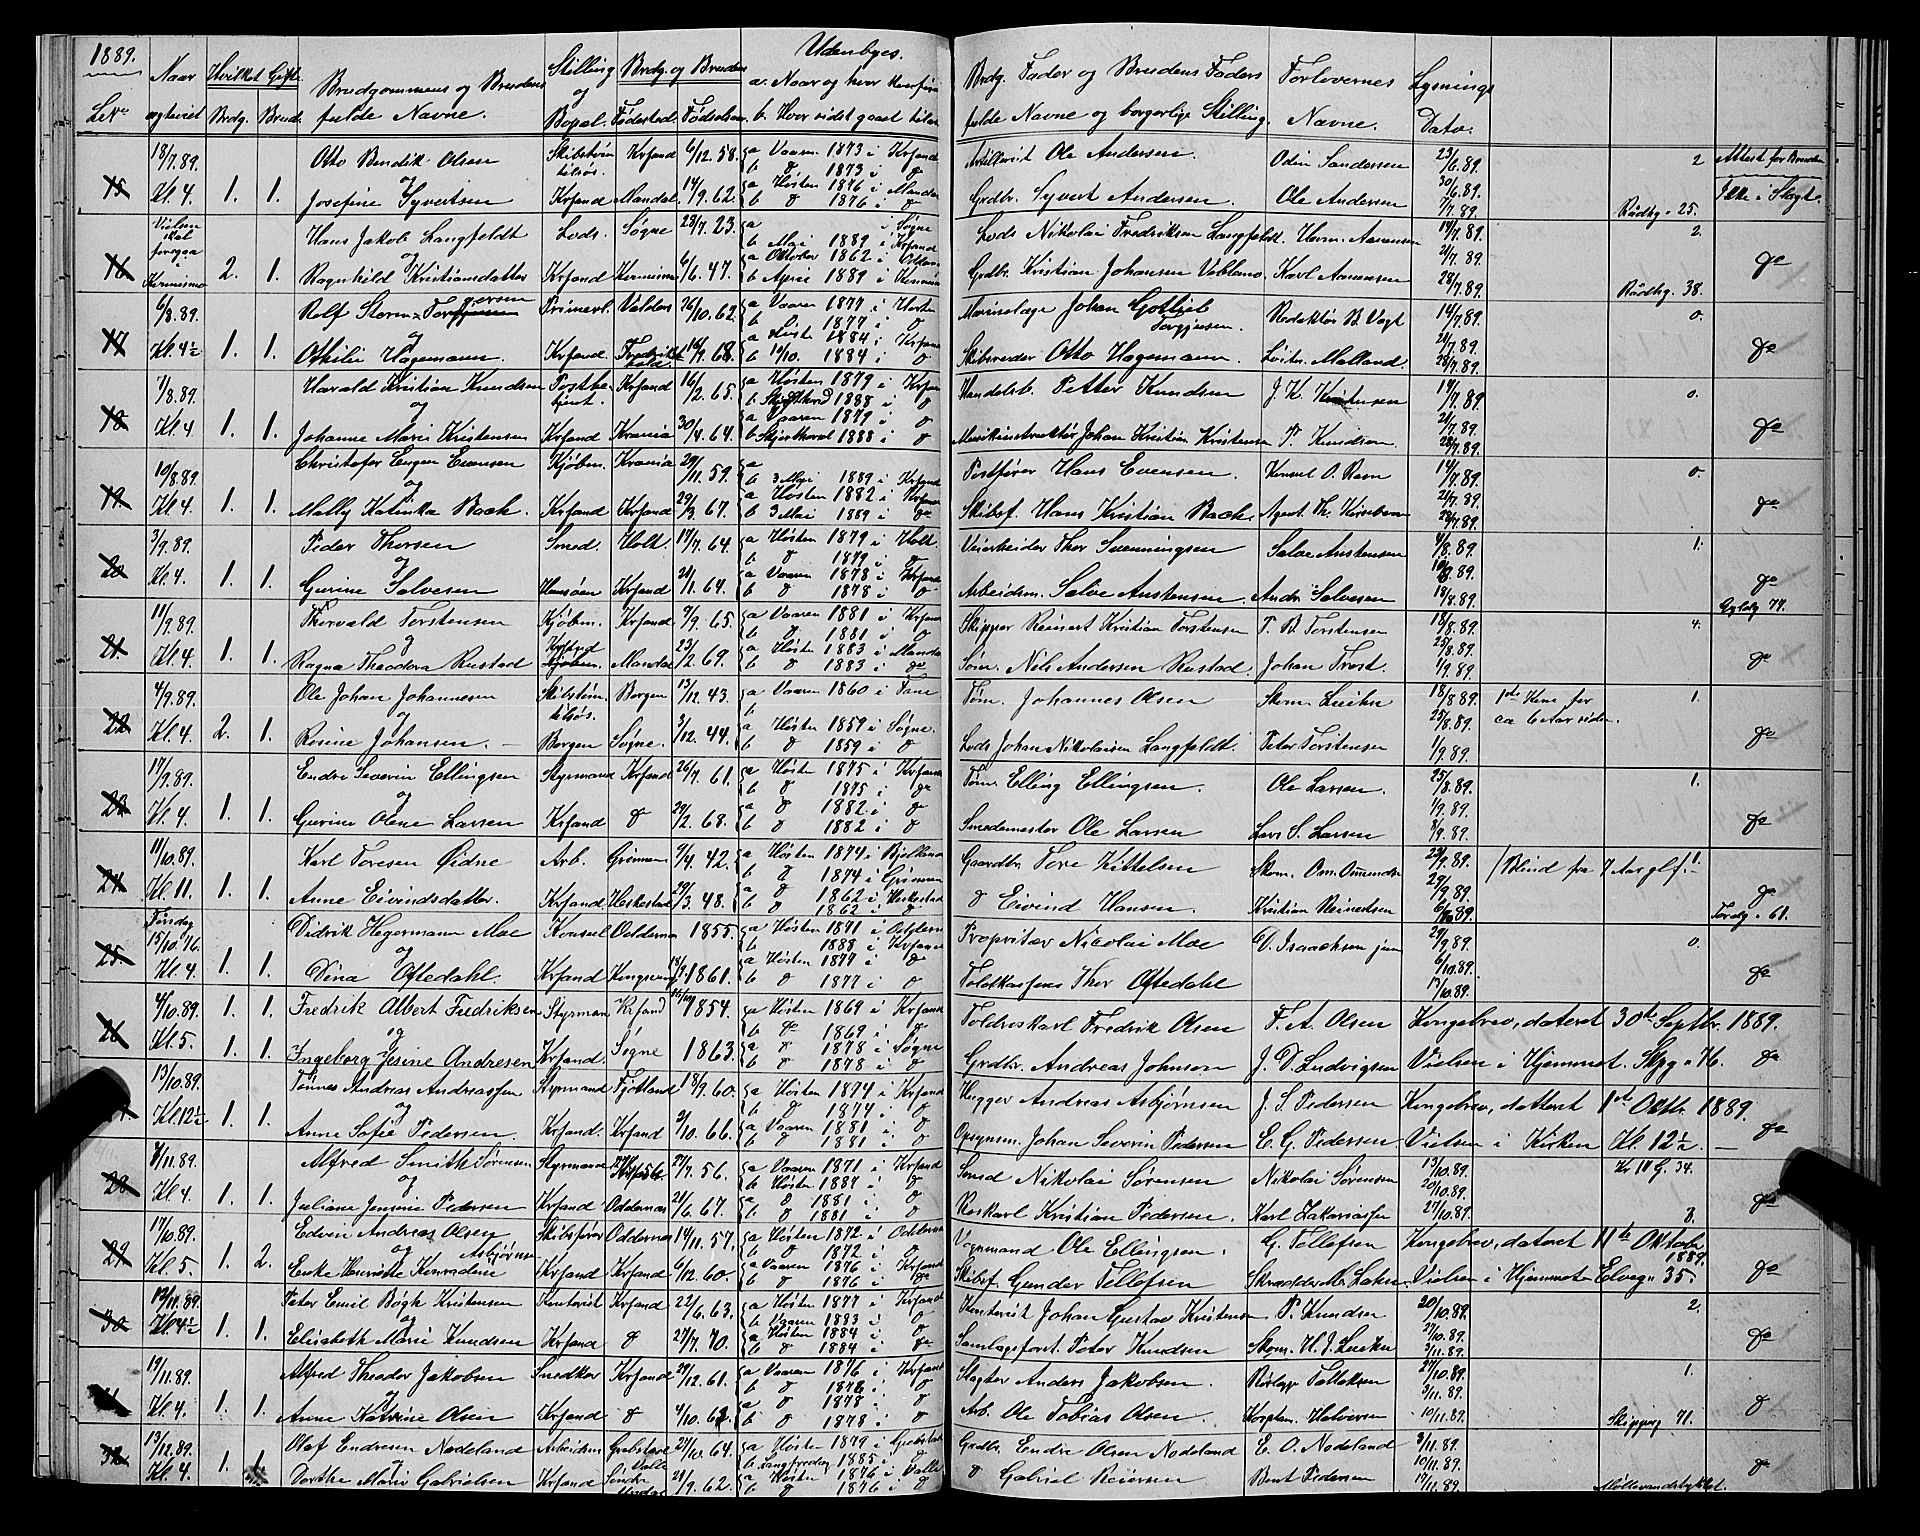 1889.
LNo Naar ægteviet Hvilket Gifte Brdg. Brud. Brudgommens og Brudens fulde Navne. Stilling og Bopæl. Brdg. og Brudens Fødested. Fødselsaar Udenbyes. a. Naar og hvor konfir. b. Hvor sidst gaaet til Brdg. Fader og Brudens Faders fulde Navne og borgerlige Stilling. Forlovernes Navne. Lysnings Dato.
18/7.89. Otto Bendik Olsen Skibstøm Krsand 6/12.58. a Vaaren 1873 i Krsand Artillerist Ole Andersen Odin Sandersen 23/6.89. 2 Attest for Bruden
15 og b d 1873 i d 30/6.89.
Kl. 4. 1. 1. Josefine Syvertsen Krsand Mandal 14/9.62. a Høsten 1876 i Mandal b d 1876 i d Grdbr. Syvert Andersen Ole Andersen 7/7.89. Rådhg. 25. Ikke i Slægt.
Vielsen skal foregaa i Hans Jakob Langfeldt Lods. Søgne 23/7.23. a i Søgne b Mai 1889 i Krsand Lods Nikolai Fredriksen Langfeldt. Herm. Aanensen 14/7.89. 2.
16 og 21/7.89.
2. 1. Ragnhild Kristiansdatter Krsand 6/6.47. a Oktober 1862 i b April 1889 i Grdbr. Kristian Johansen Karl Aanensen 28/7.89. Rådhg. 38. do
6/8.89. Rolf Storm Torgersen Primærl. Valdøs 26/10.62. a Vaaren 1877 i Horten b 1877 i d Marinelæge Johan Gottlieb Torgersen. Redaktør B. Vogt 14/7.89. 0.
17 og 21/7.89.
Kl. 4½ 1. 1. Othilie Hagemann. Krsand. Fredrikshald. 14/9.68. a 1884 i Krsand b 19/10. 1884 i d Skibsreder Otto Hagemann. Løitn. Malland. 28/7.89. do
7/8.89. Harald Kristian Knudsen Postbetjent. Krsand 16/2.65. a Høsten 1879 i Krsand b 1888 i d Handelsb. Petter Knudsen J. K. Kristensen 14/7.89. 0.
18 og 21/7.89.
Kl. 4 1. 1. Johanne Marie Kristensen Krsand Krania 30/4.64. a Vaaren 1879 i d b Skjærthorsd. 1888 i d Musikinstruktør Johan Kristian Kristensen P. Knudsen 28/7.89. do
10/8.89. Christofer Evensen Kjøbm. Krania 29/11.59. a b 3 Mai 1889 i Krsand Postfører Hans Evensen Konsul O. Ravn 14/7.89. 0.
19. og 21/7.89.
Kl. 4 1. 1. Mally Katinka Bach. Krsand Krsand 29/3.67. a Høsten 1882 i Krsand b 3 Mai 1889 i do Skibsf. Hans Kristian Bach. Agent Th. Kirsebom 28/7.89. do
3/9.89. Peder Thorsen Smed. Holt. 17/7.64. a Høsten 1879 i Holt. b d 1879 i d Veiarbeider Thor Svenningsen Salve Austensen 4/8.89. 1.
20 og
Kl. 4. 1. 1. Gurine Salvesen Krsand 21/1.64. a Vaaren 1878 i Krsand b d 1878 i d Arbeidsm. Salve Austensen. Andr. Salvesen 18/8.89. Gyldg. 77. do
11/9.89. Thorvald Torstensen Kjøbm. Krsand 9/9.65. a Vaaren 1881 i Krsand b d 1881 i d Skipper Reinert Kristian Torstensen P. B. Torstensen 18/8.89. 4.
21. og 25/8.89.
Kl. 4 1. 1. Ragna Theodora Rustad Krsand Mandal 23/2.69. a Høsten 1883 i Mandal b d 1883 i do Søm. Nils Andersen Rustad Johan Trost. 1/9.89. do
4/9.89. Ole Johan Johannesen Skibstøm. Bergen 13/12.43. a Vaaren 1860 i Fane b Tøm. Johannes Olsen Skom. Lueken 18/8.89. 1ste Kone for ca 6 Aar siden. 1.
22 og 25/8.89.
Kl. 4. 2. 1. Rosine Johansen. Bergen Søgne. 3/12.44. a Høsten 1859 i Søgne. b d 1859 i d Lods Johan Nikolaisen Langfeldt. Peter Torstensen 1/9.89. do
17/9.89. Endre Severin Ellingsen Styrmand Krsand 26/7.61. a Høsten 1875 i Krsand b d 1875 i do Tøm. Elling Ellingsen. Ole Larsen. 25/8.89. 1.
23 og 1/9.89.
Kl. 4. 1. 1. Gurine Olene Larsen Krsand d 29/2.68. a d 1882 i d b d 1882 i d Smedemester Ole Larsen Lars S. Larsen 8/9.89. do
11/10.89. Karl Toresen Øidne Arb. Grimnes 7/4.42. a Høsten 1874 i Bjelland b d 1874 i Grimnes Gaardbr. Tore Kittelsen Skom. Om. Omundsen 22/9.89. (Blind fra 7 Aar gl f.) 1.
24 29/9.89.
Kl. 11. 1. 1. Anne Eivindsdatter. Krsand Heskestad 29/3.48. a d 1862 i Heskestad b d 1862 i d d Eivind Hansen. Kristian Reinertsen 6/10.89. Tordg. 61. do
Tirsdag 15/10. Didrik Hegermann Moe Konsul Oddernes 1855. a Høsten 1871 i Oddernes b d 1888 i Krsand Proprietær Nicolai Moe D. Isaachsen jun 29/9.89. 0.
25. og 6/10.89.
Kl. 4. 1. 1. Dina Oftedahl. Krsand 1861. a Høsten 1877 i do b d 1877 i d Toldkasserer Thor Oftedahl 13/10.89. do
4/10.89. 1. 1. Fredrik Albert Fredriksen Styrmand Krsand 1854. a Høsten 1869 i Krsand b do 1869 i do Toldroskarl Fredrik Olsen F. A. Olsen Kongebrev, dateret 30te Septbr. 1889.
26 og
Kl. 5. 1. 1. Ingeborg Jesine Andresen Krsand. Søgne 1863. a d 1878 i Søgne b d 1878 i d Grdbr. Andreas Johnson J. D. Ludvigsen Vielsen i Hjemmet. Skpg. 76. do
13/10.89. Tønnes Andreas Andreassen Styrmand Fjotland 18/9.60. a Høsten 1874 i Krsand b d 1874 i d Hugger Andreas Asbjørnsen J. S. Pedersen Kongebrev, dateret 1ste Oktbr. 1889.
og
Kl. 12½ 1. 1. Anne Sofie Pedersen. Krsand. Krsand 2/10.66. a Vaaren 1881 i d b d 1881 i d Opsynsm. Johan Severin Pedersen E. G. Pedersen Vielsen i Kirken Kl. 12½. do
8/11.89. Alfred Smith Sørensen Styrmand 27/7.56. a Vaaren 1871 i Krsand b Høsten 1887 i d Smed Nikolai Sørensen Nikolai Sørensen 13/10.89. Kr IV G. 34.
28 og 20/10.89.
Kl. 4 1. 1. Juliane Jensine Pedersen Krsand Oddernes 21/6.67. a d 1881 i d b d 1881 i d Roskarl Kristian Pedersen. Karl Zakariassen 27/10.89. 3. do
17/10.89. Edvin Andreas Olsen Skibsfører Oddernes 14/11.57. a Høsten 1872 i Oddernes b d 1872 i d Vognmand Ole Ellingsen. G. Tellefsen Kongebrev, dateret 11te Oktober 1889.
29. og Asbjørnsen
Kl. 5. 1. 2. Enke Henriette Konradine Krsand Krsand 6/12.60. a Vaaren 1876 i Krsand b d 1876 i do Skibsf. Gunder Tellefsen Skrædder M. Lahn. Vielsen i Hjemmet Elveg. 35. do
12/11.89. Peter Emil Bøgh Kristensen Kontorist Krsand 22/6.63. a Høsten 1877 i Krsand b Vaaren 1883 i d Kontorist Johan Gustav Kristensen P. Knudsen 20/10.89. 2.
30 og 27/10.89.
Kl. 4½ 1. 1. Elisabeth Marie Knudsen Krsand d 27/7.70. a Høsten 1884 i d b d 1884 i do Samlagsforst. Peter Knudsen Skom. H. J. Lueken 3/11.89. do
19/11.89. Alfred Theodor Jakobsen Snedker Krsand 29/12.61. a Vaaren 1876 i Krsand b d 1876 i d Slagter Anders Jakobsen. Tallaksen 27/10.89. 1.
og 3/11.89.
Kl. 4. 1. 1. Anne Katrine Olsen Krsand d 4/10.62. a d 1878 i d b d 1878 i d Arb. Ole Tobias Olsen Halvorsen 10/11.89. Skipperg. 71. d
13/12.89. Olaf Endresen Nodeland Arbeidsm. 27/10.64. a Høsten 1879 i b Langfredag 1885 i Grdbr. Endre Olsen Nodeland E. O. Nodeland 3/11.89.
32 og 10/11.89.
Kl. 4. 1. 1. Dorthe Marie Gabrielsen Krsand Valle Søndre 21/9.62. a Høsten 1876 i Valle b d 1876 i d d Gabriel Reiersen Bent Pedersen 17/11.89. d
Møllevandsbykket.